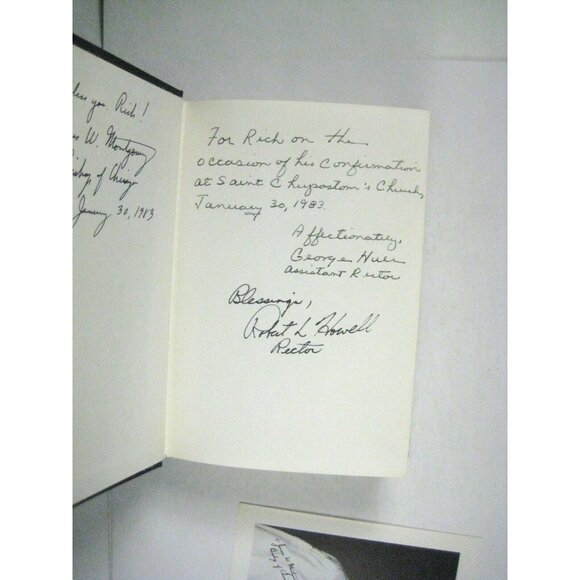 you. Rich!
W. Montgomery
Bishop of Chicago
January 30, 1983
For Rich on the
occasion of his Confirmation
at Saint Chrysostom's Church,
January 30, 1983.
Affectionately,
George Hull
Assistant Rector
Blessings,
Robert L Howell
Rector